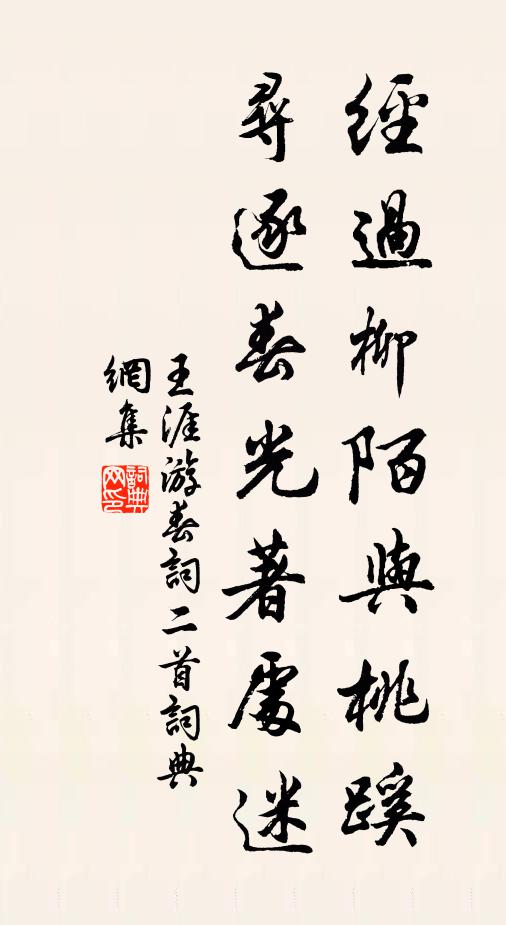 經過柳陌與桃蹊
尋逐春光著處迷
王涯游春詞二首詞典
網集
詞典網印